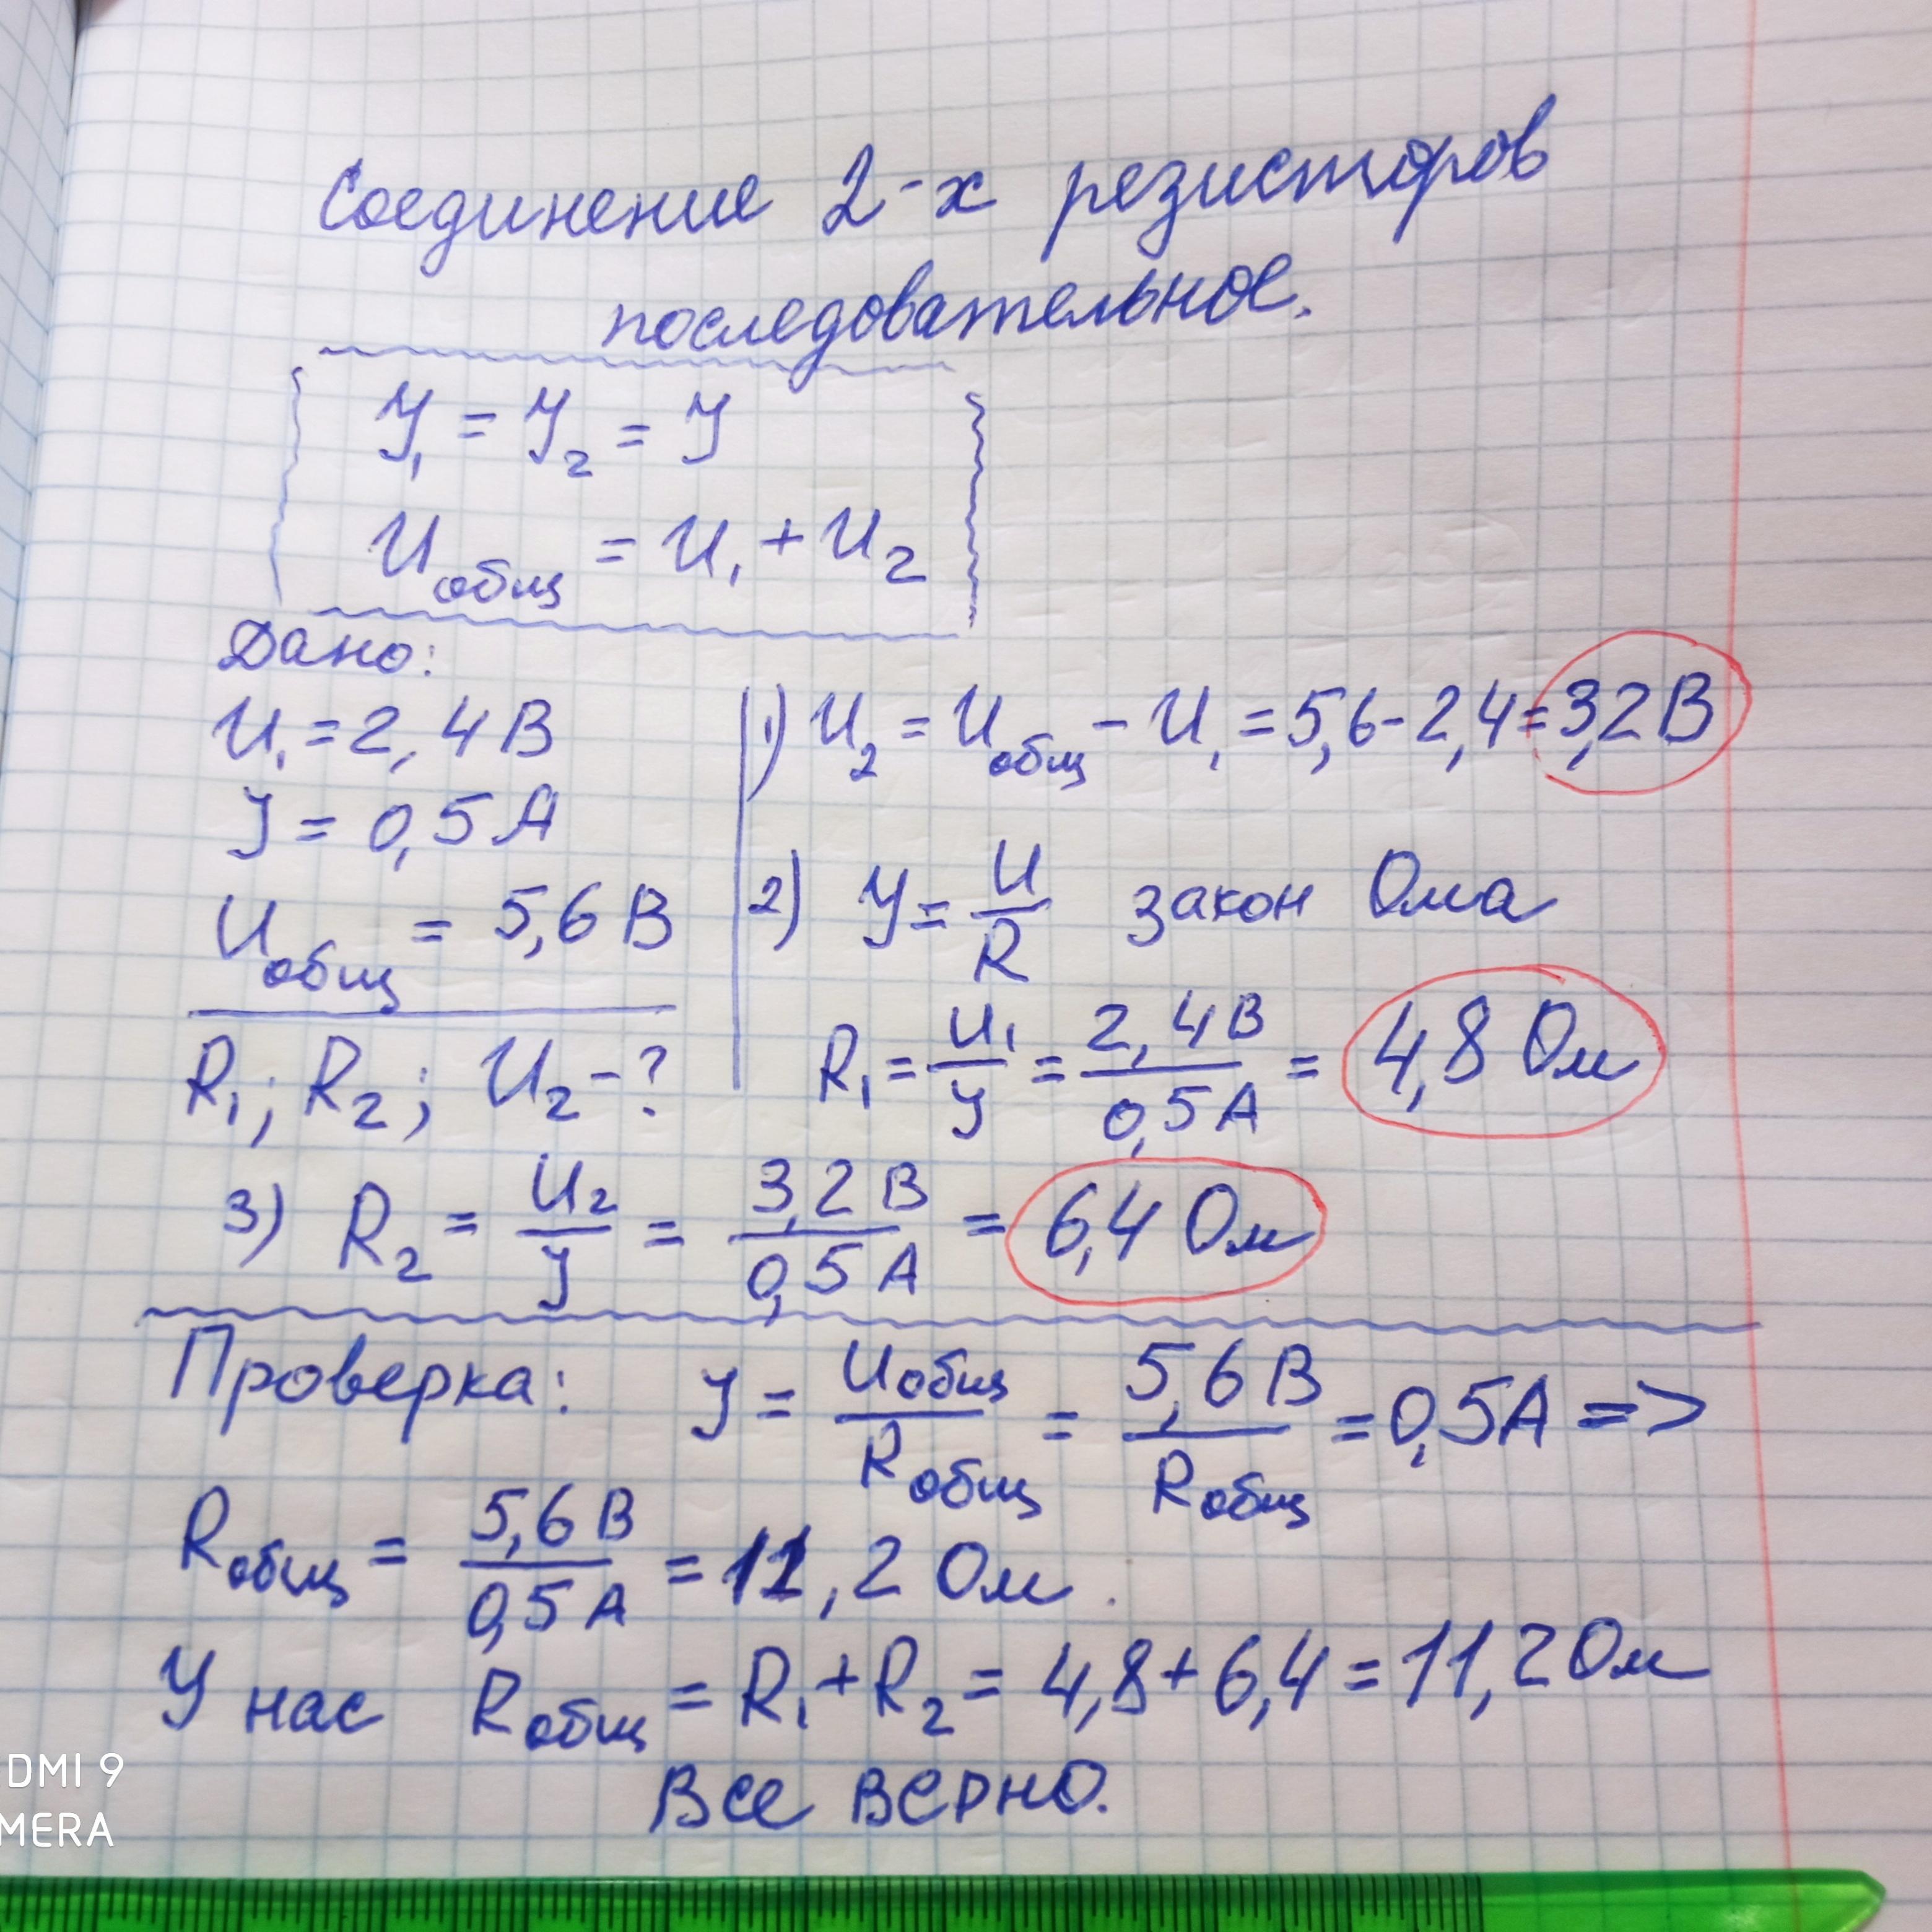 Соединение 2-х резисторов
последовательное.
У₁ = У₂ = У
Uобщ = U₁ + U₂
Дано:
U₁ = 2,4 В
У = 0,5 А
Uобщ = 5,6 В
R₁; R₂; U₂ - ?
1) U₂ = Uобщ - U₁ = 5,6 - 2,4 = 3,2 В
2) У = U/R закон Ома
R₁ = U₁/У = 2,4 В/0,5 А = 4,8 Ом
3) R₂ = U₂/У = 3,2 В/0,5 А = 6,4 Ом
Проверка: У = Uобщ/Rобщ = 5,6 В/Rобщ = 0,5 А =>
Rобщ = 5,6 В/0,5 А = 11,2 Ом.
У нас Rобщ = R₁ + R₂ = 4,8 + 6,4 = 11,2 Ом
Все верно.
DMI 9
MERA